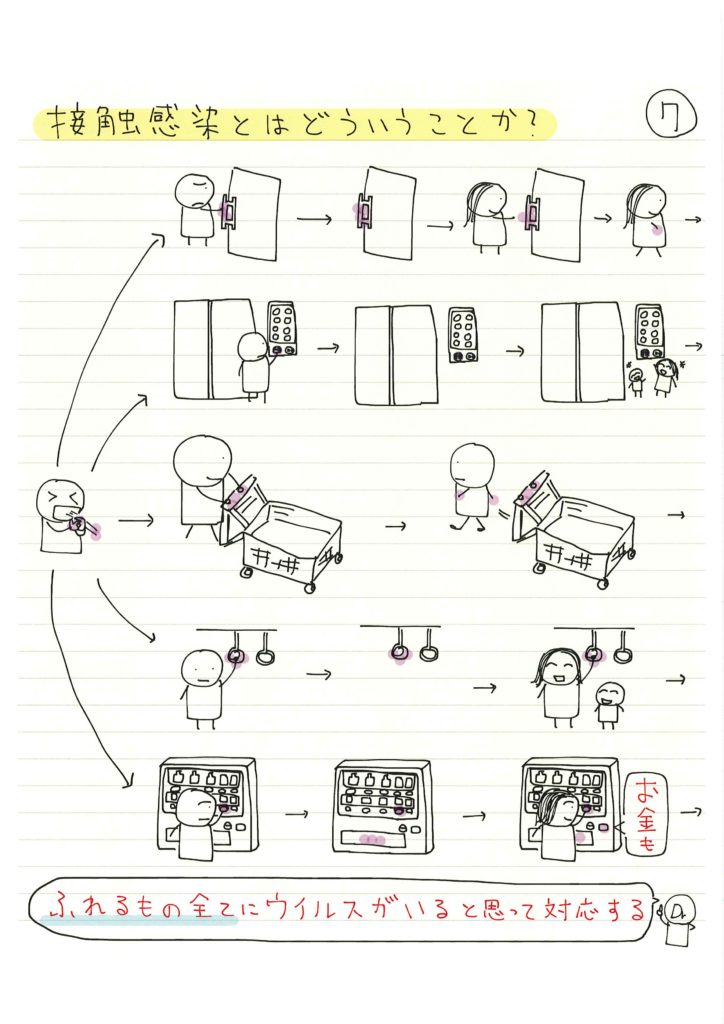 接触感染とはどういうことか?
7
お金も
ふれるもの全てにウイルスがいると思って対応する
Dr.